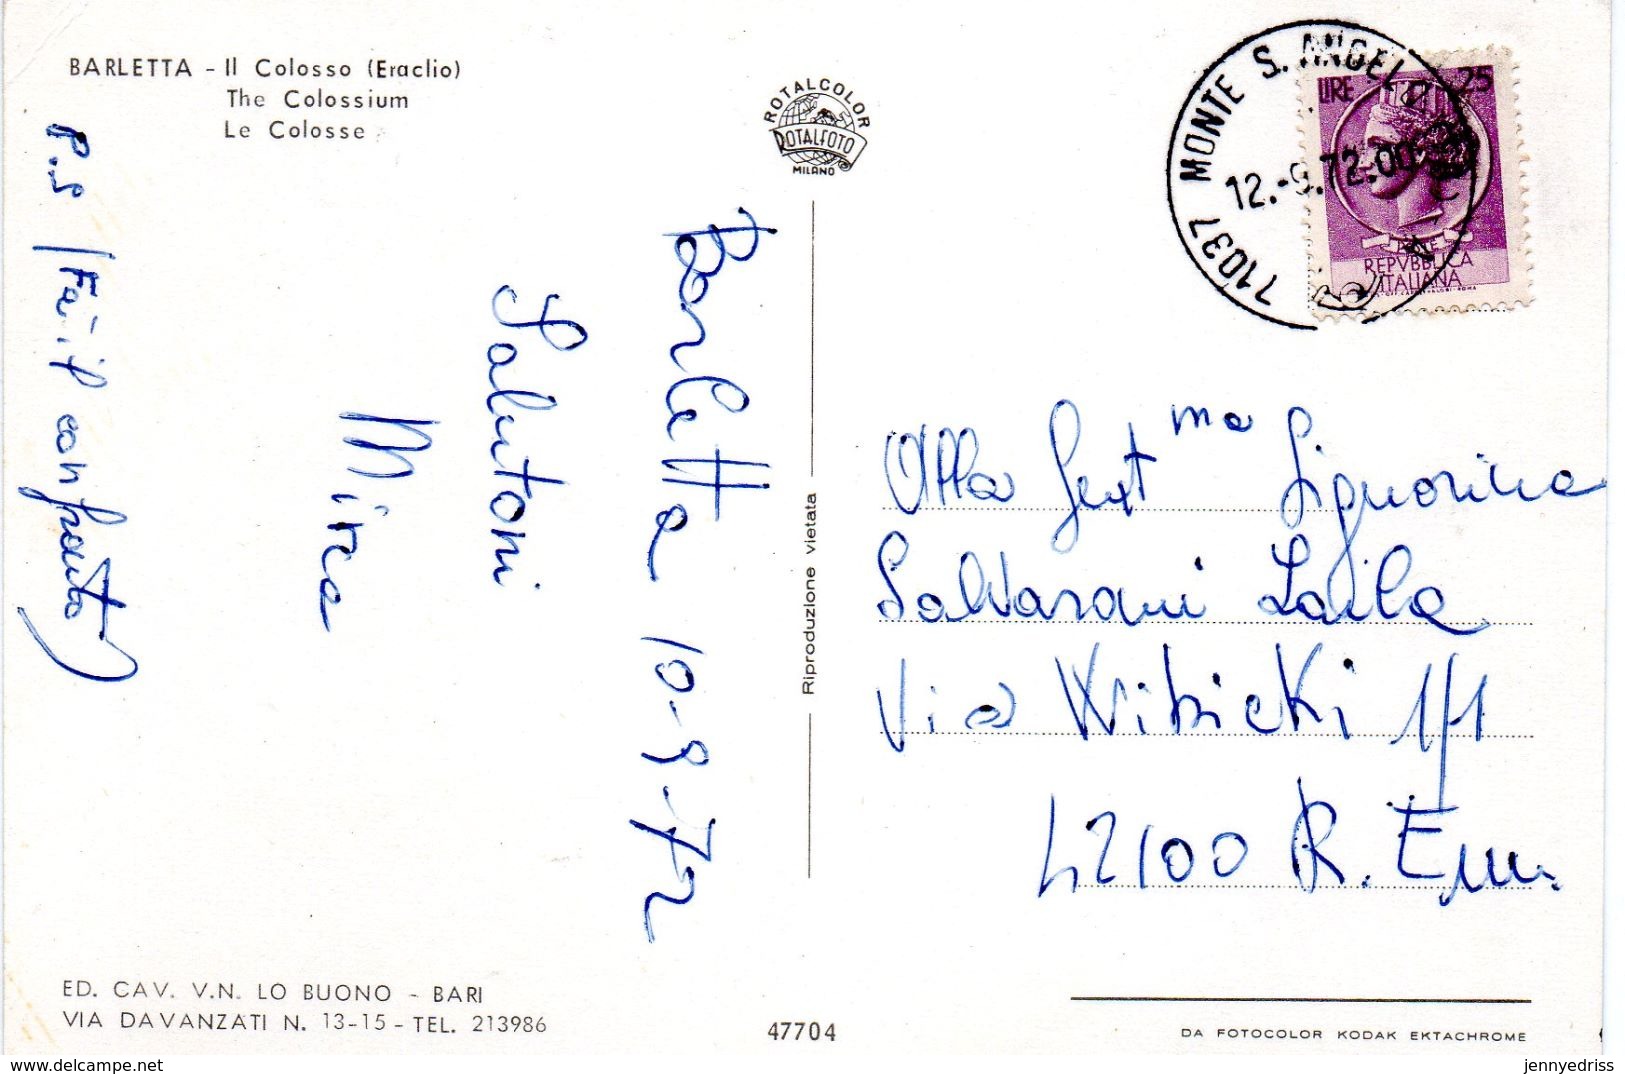 BARLETTA - Il Colosso (Eraclio)
The Colossium
Le Colosse
ROTALCOLOR
ROTALFOTO
MILANO
71037 MONTE S. ANGELO
12.-9.72.00
LIRE 25
REPVBBLICA
ITALIANA
Barletta 10-9-72
Salutoni
Mirca
P.S (Fai il confronto)
Riproduzione vietata
Alla Gent ma Signorina
Salvarani Laila
Via Wibicki 1/1
42100 R. Em.
ED. CAV. V.N. LO BUONO - BARI
VIA DAVANZATI N. 13-15 - TEL. 213986
47704
DA FOTOCOLOR KODAK EKTACHROME
delcampe.net
jennyedriss